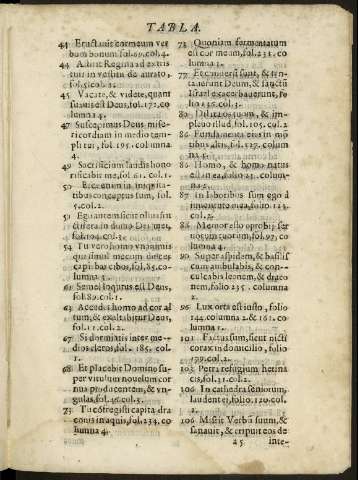 TABLA.
44 Eructauit cor meum ver
bum bonum, fol. 69. col. 4.
44 Astitit Regina a dextris
tuis in vestitu de aurato,
fol. 51. col. 2.
45 Vacate, & videte, quam
suauis est Deus, fol. 171. co
lumna 4.
47 Suscepimus Deus, mise-
ricordiam in medio tem-
pli tui, fol. 195. columna
4.
49 Sacrificium laudis hono
rificabit me, fol. 61. col. 1.
50 Ecce enim in iniquita-
tibus conceptus sum, fol.
5. col. 2.
51 Ego autem sicut oliua fru
ctifera in domo Dei mei,
fol. 194. col. 2.
54 Tu vero homo vnanimis
qui simul mecum dulces
capiebas cibos, fol. 85. co-
lumna 3.
61 Semel loquutus est Deus,
fol. 89. col. 1.
63 Accedet homo ad cor al
tum, & exaltabitur Deus,
fol. 11. col. 2.
67 Si dormiatis inter me-
dios cleros, fol. 185. col.
1.
68 Et placebit Domino su-
per vitulum nouelum cor
nua producentem, & vn-
gulas, fol. 46. col. 3.
73 Tu cōfregisti capita dra
conis in aquis, fol. 234. co
lumna 4.
73 Quoniam
est cor meum, fol. 231. co
lumna 1.
77 & ten-
tauerunt Deum, & sanctū
Israel exacerbauerunt, fo
lio 136. col. 3.
80 Dilata os tuum, & im-
plebo illud, fol. 105. col. 2
86 Fundamenta eius in mō
tibus altis, fol. 327. colum
na 3.
86 Homo, & homo natus
est in ea, folio 23. colum-
na 2.
87 In laboribus sum ego à
iuuentute mea, folio 123.
col. 3.
88 Memor esto oprobij ser
uorum tuorum, fol. 97. co
lumna 4.
90 Super aspidem, & basilis
cum ambulabis, & con-
culcabis leonem, & draco
nem, folio 235. columna
2.
96 Lux orta est iusto, folio
144. columna 2. & 161. co
lumna 1.
101 Factus sum, sicut nicti
corax in domicilio, folio
199. col. 2.
103 Petra refugium herina
cijs, fol. 31. col. 2.
106 In cathedra seniorum,
laudent ei, folio. 120. col.
2.
106 Missit Verbū suum, &
sanauit, & eripuit eos de
a 5 inte-